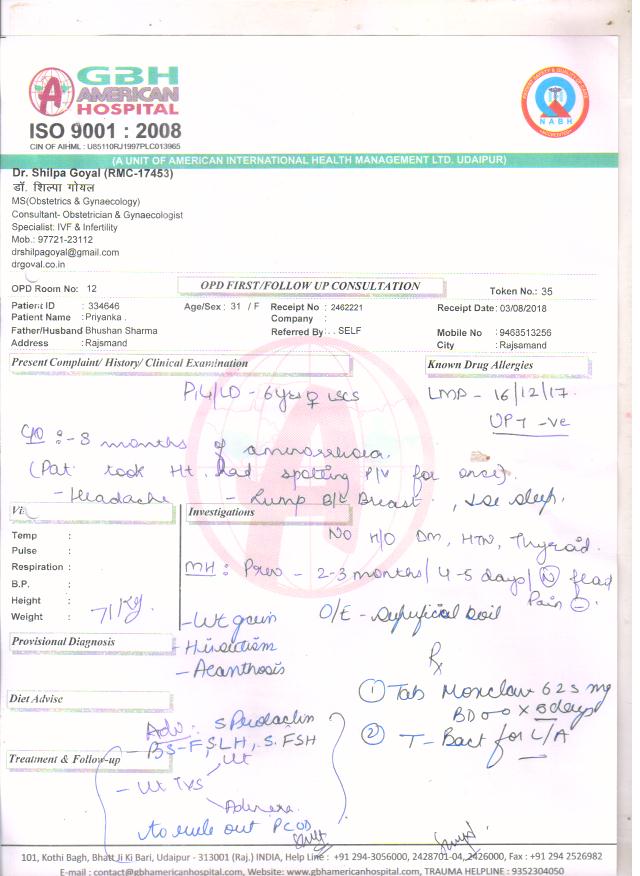 GBH
AMERICAN
HOSPITAL
ISO 9001 : 2008
CIN OF AIHML : U85110RJ1997PLC013965
NABH
(A UNIT OF AMERICAN INTERNATIONAL HEALTH MANAGEMENT LTD. UDAIPUR)
Dr. Shilpa Goyal (RMC-17453)
डॉ. शिल्पा गोयल
MS(Obstetrics & Gynaecology)
Consultant- Obstetrician & Gynaecologist
Specialist: IVF & Infertility
Mob.: 97721-23112
drshilpagoyal@gmail.com
drgoyal.co.in
OPD Room No: 12
OPD FIRST/FOLLOW UP CONSULTATION
Token No.: 35
Patient ID : 334646 Age/Sex : 31 / F Receipt No : 2462221 Receipt Date: 03/08/2018
Patient Name : Priyanka . Company :
Father/Husband Bhushan Sharma Referred By : . . SELF Mobile No : 9468513256
Address : Rajsmand City : Rajsamand
Present Complaint/ History/ Clinical Examination
Known Drug Allergies
P1L1 LD - 6 yrs ♀ LSCS
LMP - 16/12/17.
UPT -ve
C/O :- 8 months of amenorrhoea.
(Pat. took Ht. had spotting P/V for once).
- Headache - Lump B/L Breast
sleep.
Investigations
NO H/O DM, HTN, Thyroid.
Temp :
Pulse :
Respiration :
B.P. :
Height :
Weight : 71 Kg.
MH : Prev - 2-3 months / 4-5 days / N flow
Pain -
- Wt gain O/E - superficial boil
- Hirsutism
- Acanthosis
Provisional Diagnosis
Rx
① Tab Moxclav 625 mg
BD x 5 days
② T-Bact for L/A
Diet Advise
Adv: S Prolactin
BS-F, S. LH, S. FSH
Treatment & Follow-up
Ut
- TVS
Adnexa.
to rule out PCOD
101, Kothi Bagh, Bhatt Ji Ki Bari, Udaipur - 313001 (Raj.) INDIA, Help Line : +91 294-3056000, 2428701-04, 2426000, Fax : +91 294 2526982
E-mail : contact@gbhamericanhospital.com, Website: www.gbhamericanhospital.com, TRAUMA HELPLINE : 9352304050